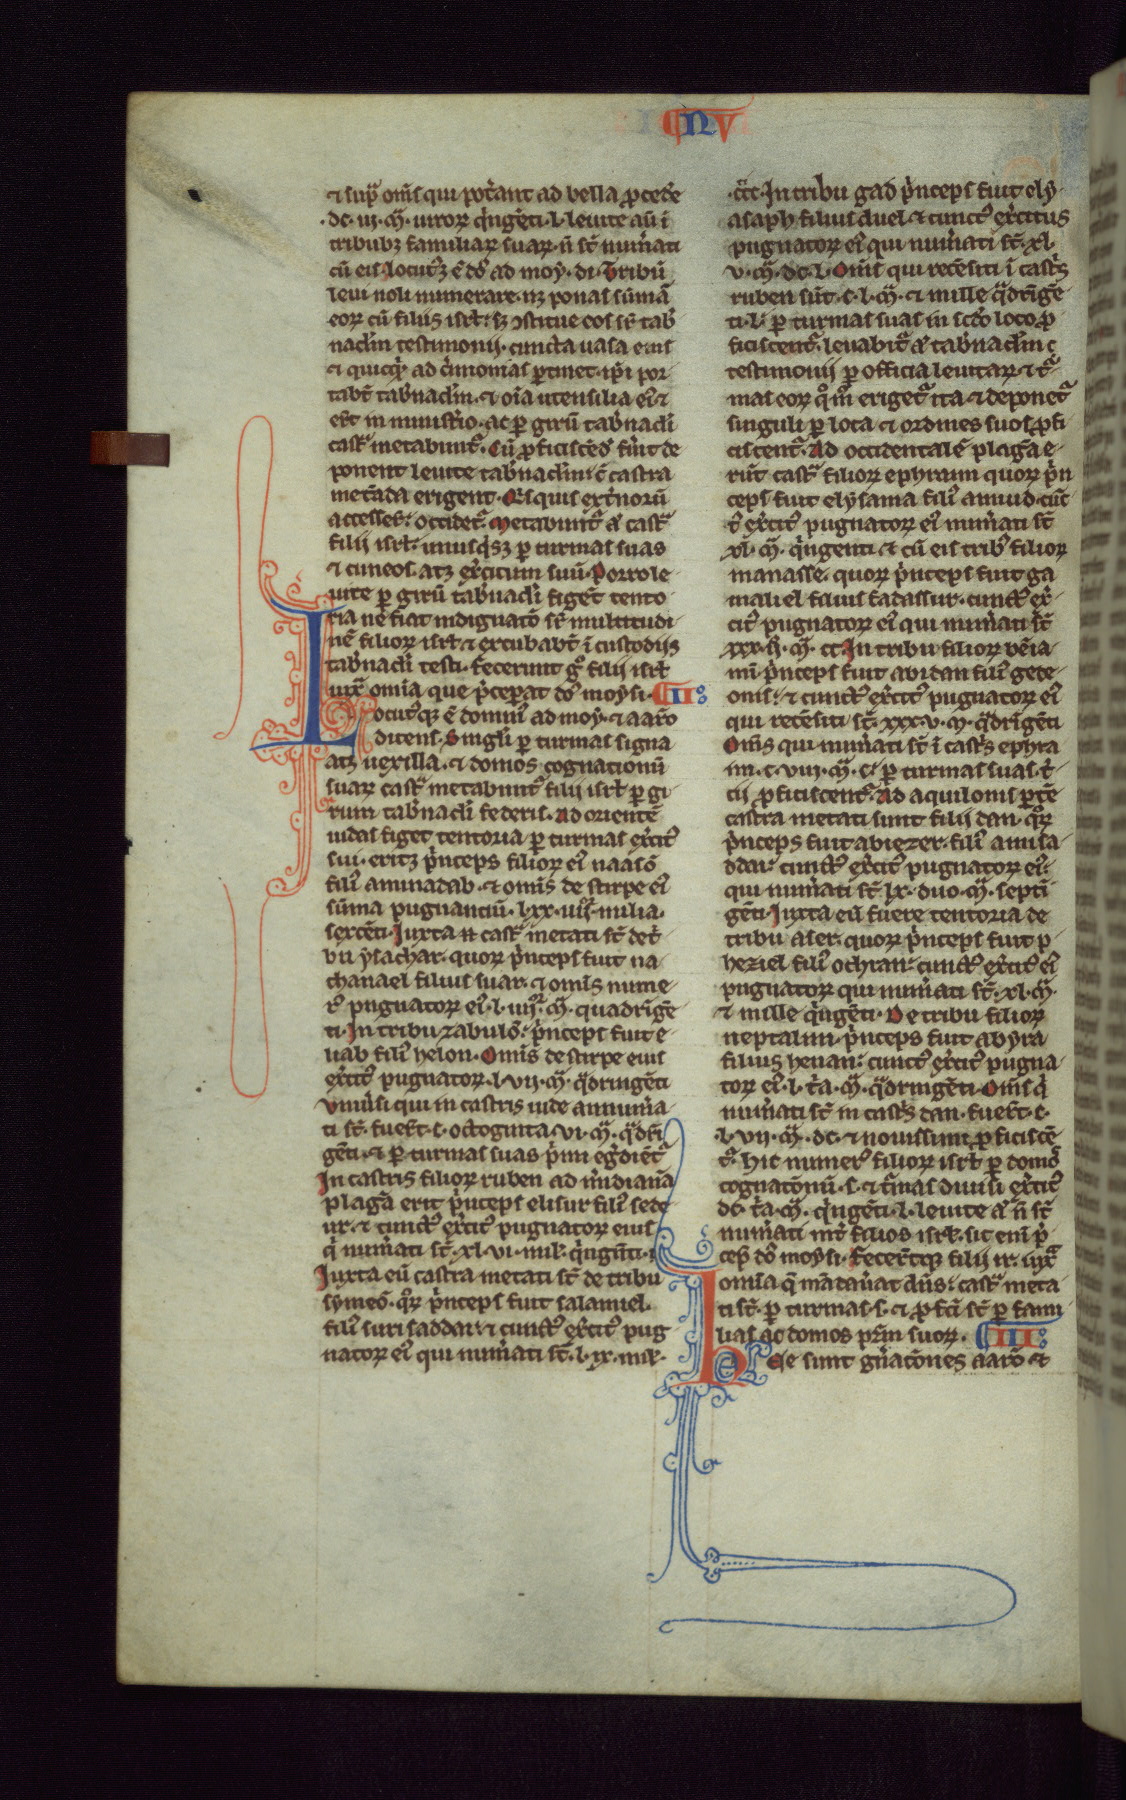 NV
⁊ sup̃ om̃s qui pot̃ant ad bella ꝓcede
·dc· iii· m̃· uiroꝝ q̃ngẽti· l· leuite aũ ĩ
tribubꝫ familiaꝝ suaꝝ· ñ st̃ num̃ati
cũ eis· Locutꝰꝫ ẽ do᷒ ad moy· di· Tribũ
leui noli numerare· nꝫ ponas sũmã
eoꝝ cũ filiis isrl̃· sꝫ ꝯstitue eos sr̃ tab̃
nacl̃m testimonij· cuncta uasa eius
⁊ quicq̃ ad c̃imonias ꝑtinet· ip̃i por
tabt̃ tab̃nacl̃m· ⁊ oĩa utensilia eiꝰ ⁊
er̃t in minist̃io· ac ꝑ girũ tab̃nacl̃i
cast̃ metabunt̃· Cũ ꝓficiscẽdꝰ fũit de
ponent leuite tab̃nacl̃m· c̃ castra
metãda erigent· Qisquis ext̃noꝝ
accesserĩt occidet̃· Metabunt̃ aꝰ cast̃
filii isrl̃· unusq̃sꝫ ꝑ turmas suas
⁊ cuneos· atꝫ ex̃citum suũ· Porro le
uite ꝑ girũ tab̃nacl̃i figẽt tento
ria ne fiat indignatõ st̃ multitudi
nẽ filioꝝ isrl̃· ⁊ excubabt̃ ĩ custodiis
tab̃nacl̃i testi· fecerunt gͦ filii isrl̃
iuxᷓ omia que p̃cep̃at do᷒ moysi· II·
Locutꝰqꝫ ẽ dominꝰ ad moy· ⁊ aarõ
dicens· Singl̃i ꝑ turmas signa
atꝫ uexilla· ⁊ domos cognationũ
suaꝝ cast̃ metabunt̃ filii isrl̃ ꝑ gi
rum tab̃nacl̃i federis· Ad orientẽ
iudas figet tentoria ꝑ turmas ex̃citꝰ
sui· eritꝫ p̃nceps filioꝝ eiꝰ naasõ
filiꝰ aminadab· ⁊ om̃is de stirpe eiꝰ
sũma pugnanciũ· lxx· iiii· milia·
sexcẽti· Iuxta ũ cast̃ metati st̃ de t̃
bu ysachar· quoꝝ p̃nceps fuit na
thanael filius suar· ⁊ om̃is nume
rꝰ pugnatoꝝ eiꝰ· l· iiii· m̃· quadrĩgẽ
ti· In tribu zabulõ· p̃nceps fuit e
liab filiꝰ helon· Om̃is de stirpe eius
ex̃citꝰ pugnatoꝝ· l· vii· m̃· q̃dringẽti
Vniũsi qui in castris iude annum̃a
ti st̃· fuer̃t· c· octoginta· vi· m̃· q̃drĩ
gẽti· ⁊ ꝑ turmas suas p̃mi eg̃diẽt̃
In castris filioꝝ ruben ad m̃idianã
plagã erit p̃nceps elisur filiꝰ sede
ur· ⁊ cunctꝰ ex̃citꝰ pugnatoꝝ eius
q̃ num̃ati st̃· xl· vi· mil̃· q̃ngẽti·
Iuxta eũ castra metati st̃ de tribu
symeõ· q̃ꝝ p̃nceps fuit salamiel·
filiꝰ surisaddai· ⁊ cunctꝰ ex̃citꝰ pug
natoꝝ eiꝰ qui num̃ati st̃· l· ix· mil̃·
·ccc· In tribu gad p̃nceps fuit ely
asaph filius duel· ⁊ cunctꝰ ex̃citus
pugnatoꝝ eiꝰ qui num̃ati st̃· xl·
v· m̃· dc· l· Om̃is qui recẽsiti ĩ cast̃s
ruben sũt· c· l· m̃· ⁊ mille q̃drĩgẽ
ti· l· ꝑ turmas suas in scd̃o loco ꝓ
ficiscent̃· leuabit̃ aꝰ tab̃nacl̃m
testimonij ꝑ officia leuitaꝝ· ⁊ t̃
mas eoꝝ qͦm̃ eriget̃ ita ⁊ deponet̃
singuli ꝑ loca ⁊ ordines suos ꝓfi
ciscent̃· Ad occidentalẽ plagã e
rũt cast̃ filioꝝ ephraim quoꝝ p̃n
ceps fuit elysama filiꝰ amiud· cũc
tꝰ ex̃citꝰ pugnatoꝝ eiꝰ num̃ati st̃
xl· m̃· q̃ngenti· ⁊ cũ eis tribꝰ filioꝝ
manasse· quoꝝ p̃nceps fuit ga
maliel filius fadassur· cunctꝰ ex̃
citꝰ pugnatoꝝ eiꝰ qui num̃ati st̃
xxx· ii· m̃· cc· In tribu filioꝝ bẽia
mĩ p̃nceps fuit abidan filiꝰ gede
onis· ⁊ cunctꝰ ex̃citꝰ pugnatoꝝ eiꝰ
qui recẽsiti st̃· xxx· v· m̃· q̃drĩgẽti
Om̃is qui num̃ati st̃ ĩ cast̃s ephra
im· c· viii· m̃· c· ꝑ turmas suas· t̃
cij ꝓficiscent̃· Ad aquilonis ꝑtẽ
castra metati sunt filii dan· q̃ꝝ
p̃nceps fuit abiezer· filiꝰ amisa
ddai· cunctꝰ ex̃citꝰ pugnatoꝝ eiꝰ
qui num̃ati st̃· lx· duo· m̃· septĩ
gẽti· Iuxta eũ fixere tentoria de
tribu aser· quoꝝ p̃nceps fuit p
heziel filiꝰ ochran· cunctꝰ ex̃citꝰ eiꝰ
pugnatoꝝ qui num̃ati st̃· xl· m̃·
⁊ mille q̃ngẽti· De tribu filioꝝ
neptalim· p̃nceps fuit abyra
filius henan· cunctꝰ ex̃citꝰ pugna
toꝝ eiꝰ· l· t̃a· m̃· q̃dringẽti· Om̃is q̃
num̃ati st̃ in cast̃s dan· fuer̃t· c·
l· vii· m̃· dc· ⁊ nouissimi ꝓficiscẽ
t̃· hic numerꝰ filioꝝ isrl̃ ꝑ domos
cognatõnũ· s· ⁊ t̃mas diuisi ex̃citꝰ
dc· t̃a· m̃· q̃ngẽti· l· leuite aꝰ ñ st̃
num̃ati int̃ filios isrl̃· sic eni p̃
cep̃ do᷒ moysi· fecer̃tqꝫ filii ir̃· iuxᷓ
omĩa q̃ mãdau̾at dñs· cast̃ meta
ti st̃· ꝑ turmas· s· ⁊ ꝓfc̃i st̃ ꝑ fami
lias ac domos pr̃m suoꝝ· III·
Hee sunt gñatõnes aarõ ⁊